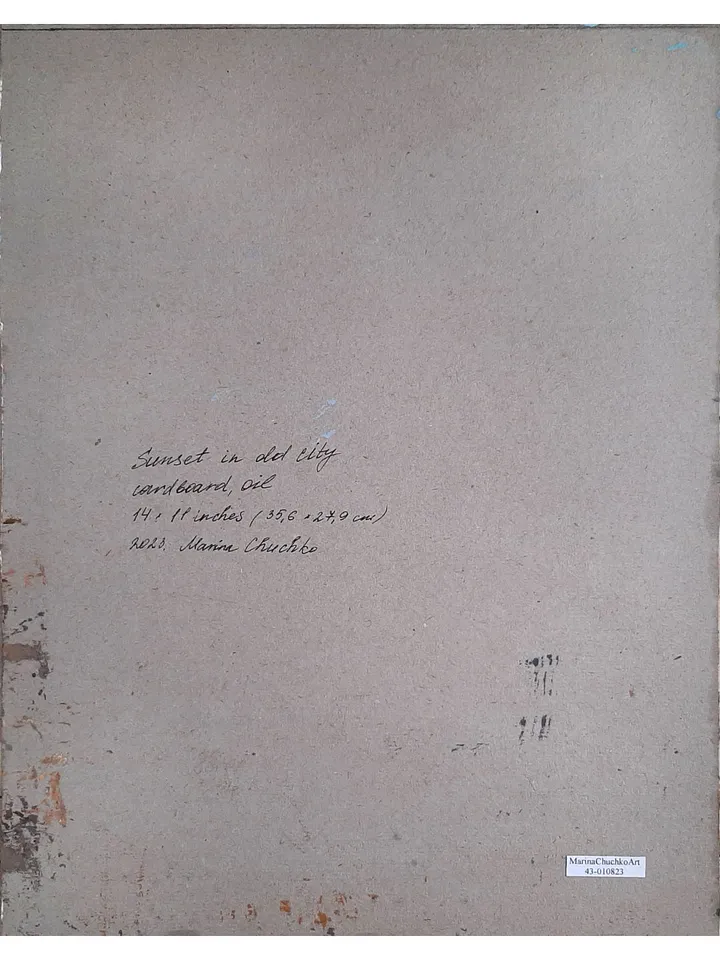 Sunset in old city
cardboard, oil
14 × 11 inches (35,6 × 27,9 cm)
2023. Marina Chuchko
MarinaChuchkoArt
43-010823